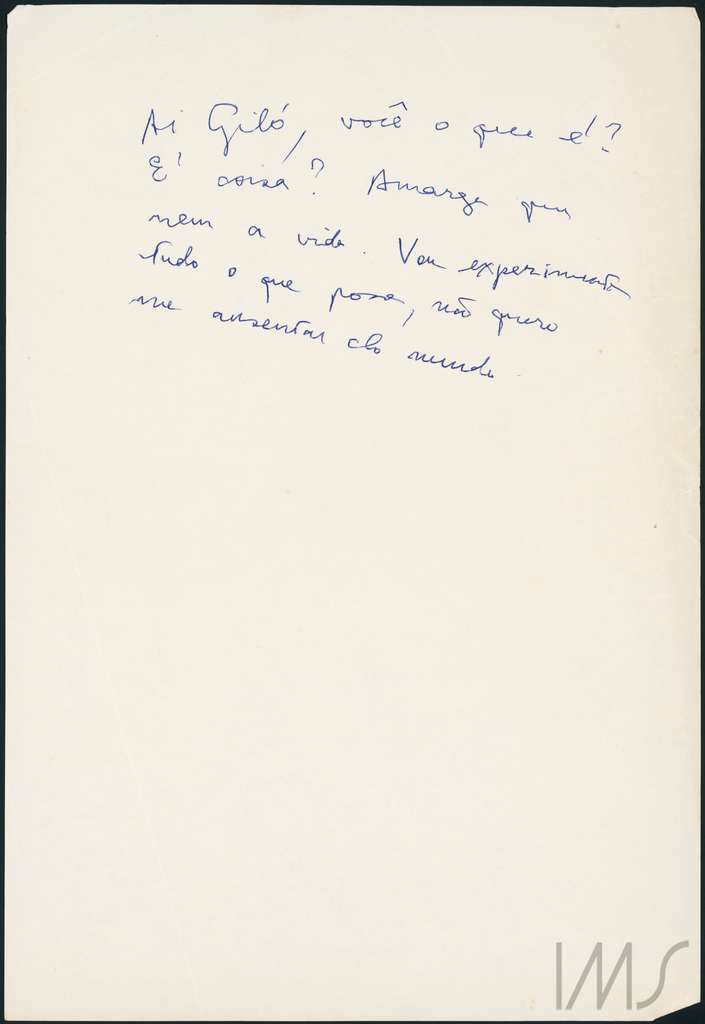 Ai Giló, você o que é?
É coisa? Amarga que
nem a vida. Vou experimentar
tudo o que possa, não quero
me ausentar do mundo
IMS